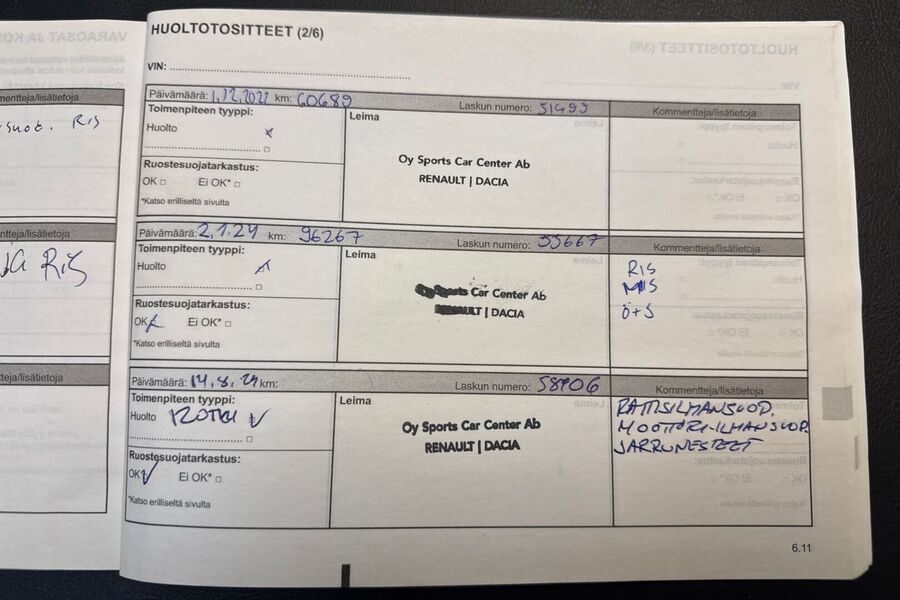 HUOLTOTOSITTEET (2/6)
VIN:
mentteja/lisätietoja
RIS
Päivämäärä: 1.12.2022 km: 60689 Laskun numero: 51499 Kommentteja/lisätietoja
Toimenpiteen tyyppi:
Huolto x
Leima
Oy Sports Car Center Ab
RENAULT | DACIA
Ruostesuojatarkastus:
OK □ Ei OK* □
*Katso erilliseltä sivulta
ntteja/lisätietoja
RIS
Päivämäärä: 2.1.24 km: 96267 Laskun numero: 55667 Kommentteja/lisätietoja
Toimenpiteen tyyppi:
Huolto x
Leima
Oy Sports Car Center Ab
RENAULT | DACIA
RIS
MIS
Ö+S
Ruostesuojatarkastus:
OK x Ei OK* □
*Katso erilliseltä sivulta
teja/lisätietoja
Päivämäärä: 14.8.24 km: Laskun numero: 58906 Kommentteja/lisätietoja
Toimenpiteen tyyppi:
Huolto
Leima
Oy Sports Car Center Ab
RENAULT | DACIA
RAITISILMANSUOD.
MOOTTORI-ILMANSUOD.
JARRUNESTEET
Ruostesuojatarkastus:
OK Ei OK* □
*Katso erilliseltä sivulta
6.11